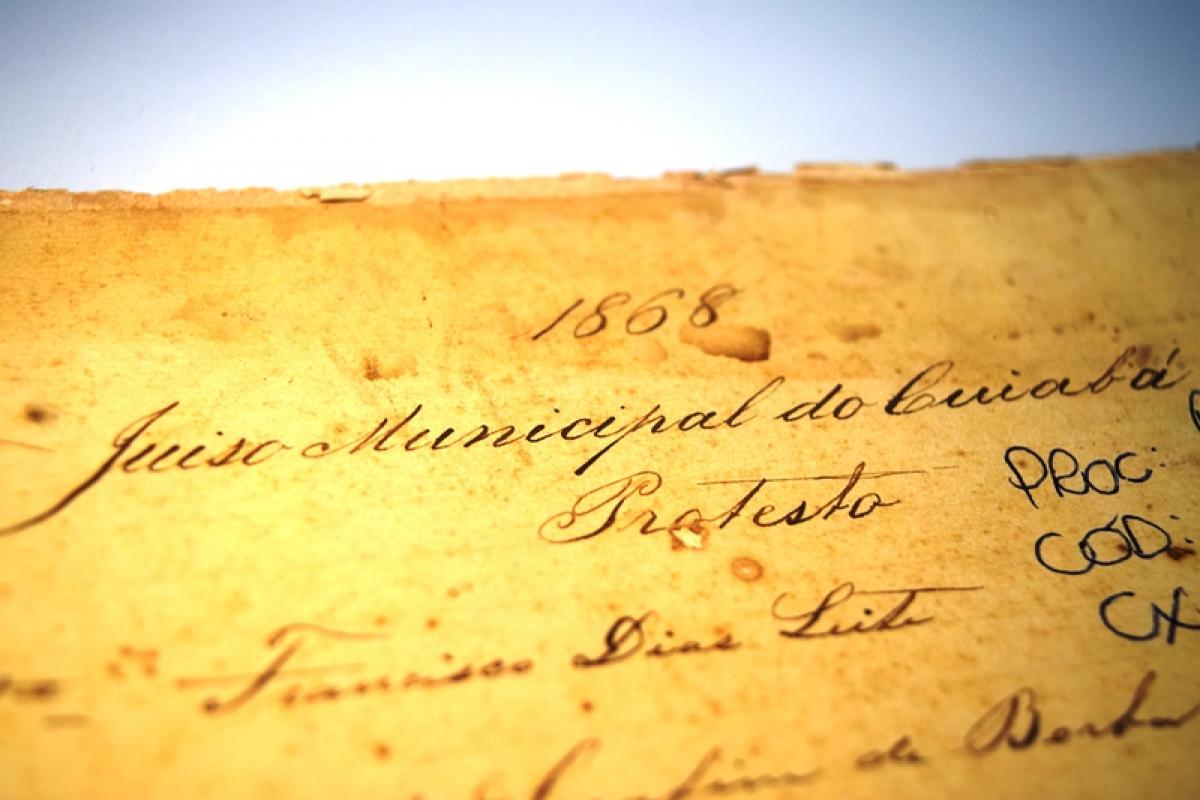 1868
Juiso Municipal do Cuiabá
Protesto
PROC:
CÓD:
CX
Francisco Dias Leite
de